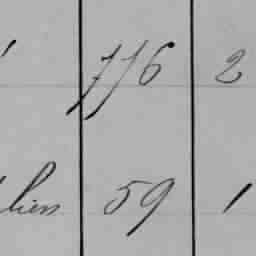 776 2
lien 59 1